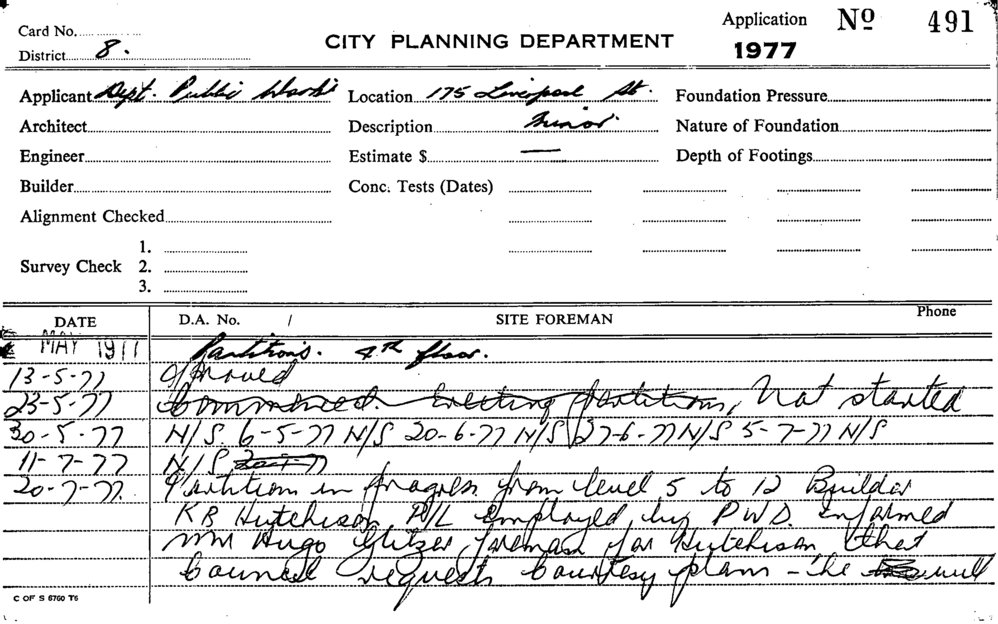 Card No.
District 8.
CITY PLANNING DEPARTMENT
Application Nº 491
1977
Applicant Dept. Public Works
Location 175 Liverpool St.
Foundation Pressure
Architect
Description Minor.
Nature of Foundation
Engineer
Estimate $ —
Depth of Footings
Builder
Conc. Tests (Dates)
Alignment Checked
1.
Survey Check 2.
3.
DATE D.A. No. / SITE FOREMAN Phone
MAY 1977 Partitions. 4th floor.
13-5-77 Approved
23-5-77 Commenced. Erecting partitions, Not started
30-5-77 N/S. 6-5-77 N/S 20-6-77 N/S 27-6-77 N/S 5-7-77 N/S
11-7-77 N/S
20-7-77. Partition in progress from level 5 to 12 Builder
K B Hutchison P/L Employed by P.W.D. informed
Mr Hugo Glitzer foreman for Hutchison that
Council requests Courtesy plan – he will
C OF S 6760 T6